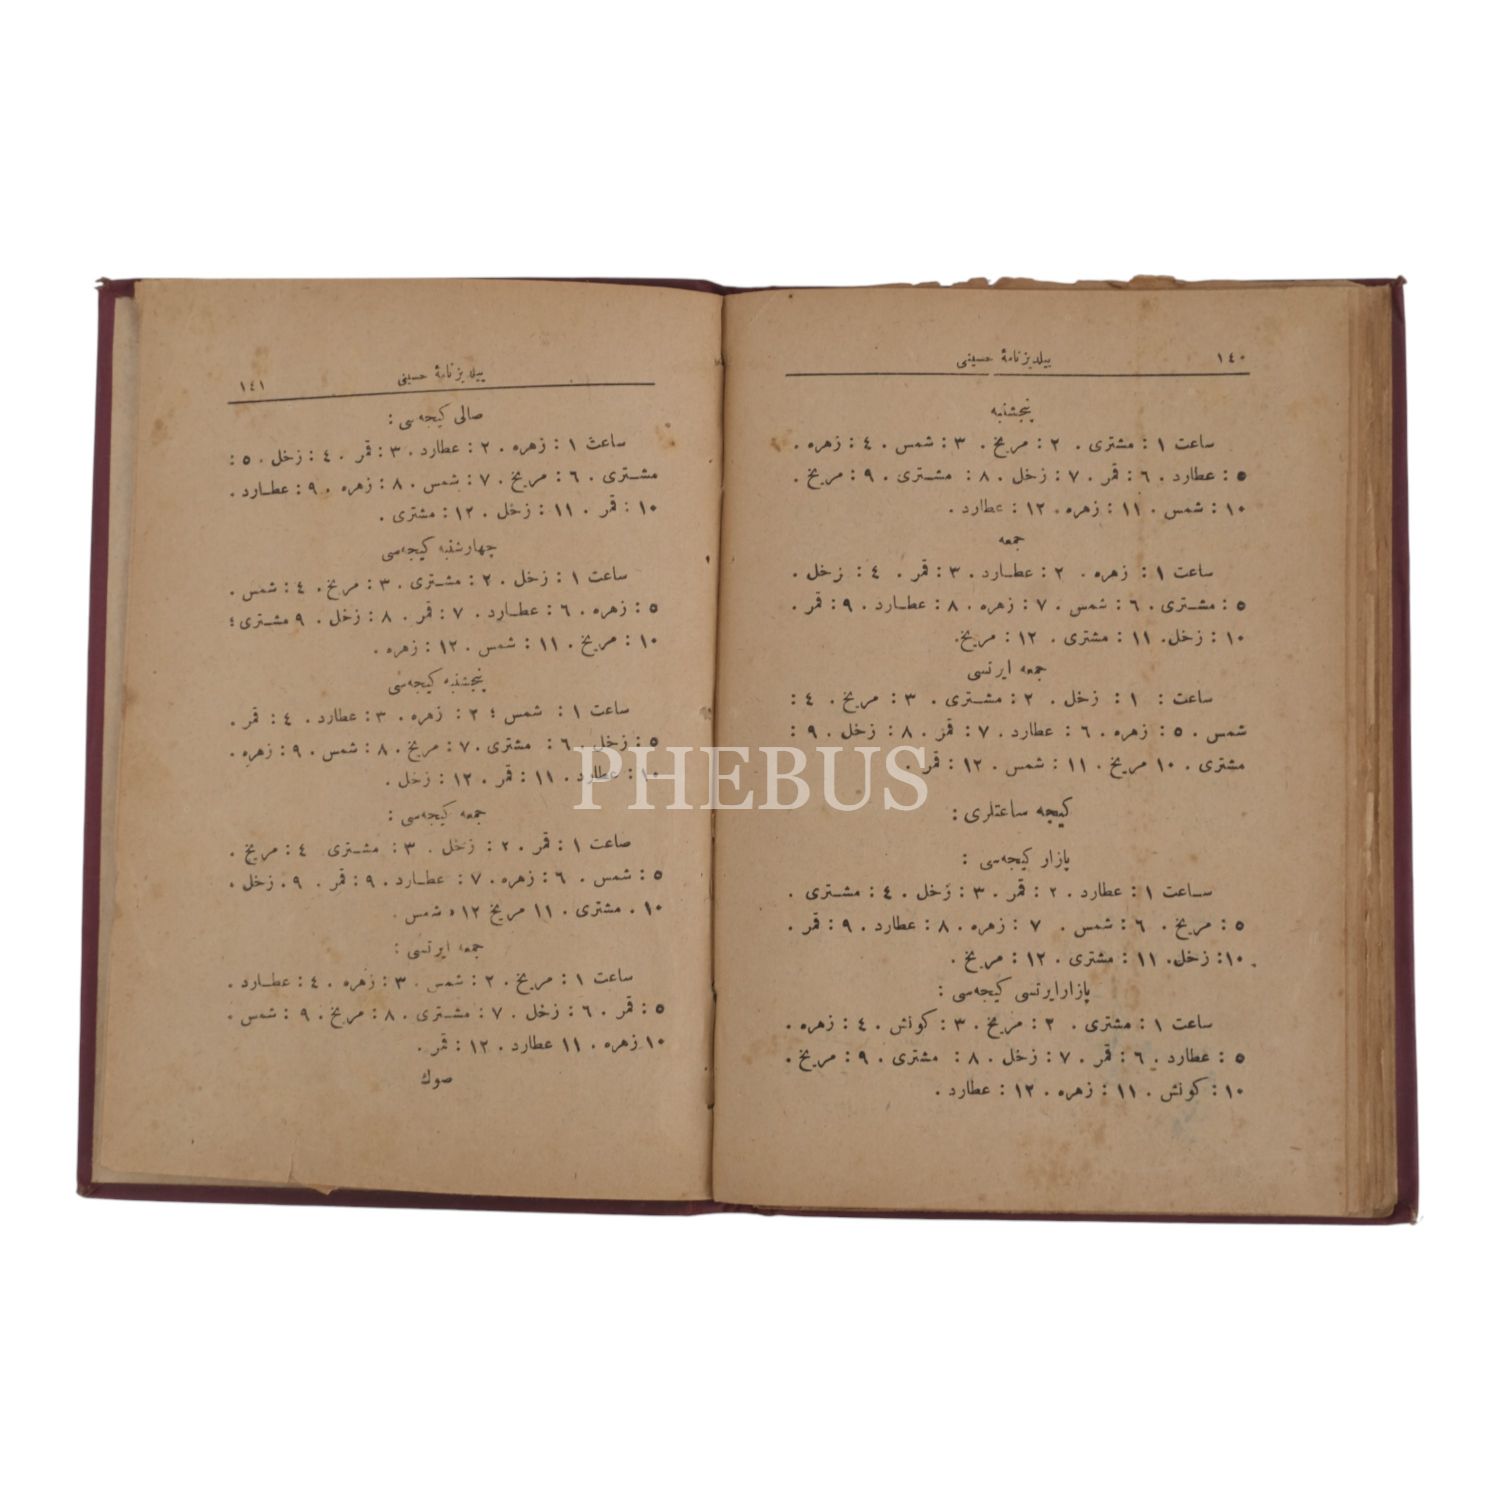 ١٤٠ ییلدیزنامهٔ حسینی
پنجشنبه
ساعت ١ : مشتری . ٢ : مریخ . ٣ : شمس . ٤ : زهره .
٥ : عطارد . ٦ : قمر . ٧ : زخل . ٨ : مشتری . ٩ : مریخ .
١٠ : شمس . ١١ : زهره . ١٢ : عطارد .
جمعه
ساعت ١ : زهره . ٢ : عطارد . ٣ : قمر . ٤ : زخل .
٥ : مشتری . ٦ : شمس . ٧ : زهره . ٨ : عطارد . ٩ : قمر .
١٠ : زخل . ١١ : مشتری . ١٢ : مریخ .
جمعه ایرتسی
ساعت : ١ : زخل . ٢ : مشتری . ٣ : مریخ . ٤ :
شمس . ٥ : زهره . ٦ : عطارد . ٧ : قمر . ٨ : زخل . ٩ :
مشتری . ١٠ مریخ . ١١ : شمس . ١٢ : قمر .
کیجه ساعتلری :
پازار کیجه‌سی :
ساعت ١ : عطارد . ٢ : قمر . ٣ : زخل . ٤ : مشتری .
٥ : مریخ . ٦ : شمس . ٧ : زهره . ٨ : عطارد . ٩ : قمر .
١٠ : زخل . ١١ : مشتری . ١٢ : مریخ .
پازارایرتسی کیجه‌سی :
ساعت ١ : مشتری . ٢ : مریخ . ٣ : کونش . ٤ : زهره .
٥ : عطارد . ٦ : قمر . ٧ : زخل . ٨ : مشتری . ٩ : مریخ .
١٠ : کونش . ١١ : زهره . ١٢ : عطارد .
ییلدیزنامهٔ حسینی ١٤١
صالی کیجه‌سی :
ساعت ١ : زهره . ٢ : عطارد . ٣ : قمر . ٤ : زخل . ٥ :
مشتری . ٦ : مریخ . ٧ : شمس . ٨ : زهره . ٩ : عطارد .
١٠ : قمر . ١١ : زخل . ١٢ : مشتری .
چهارشنبه کیجه‌سی
ساعت ١ : زخل . ٢ : مشتری . ٣ : مریخ . ٤ : شمس .
٥ : زهره . ٦ : عطارد . ٧ : قمر . ٨ : زخل . ٩ مشتری ؛
١٠ : مریخ . ١١ : شمس . ١٢ : زهره .
پنجشنبه کیجه‌سی
ساعت ١ : شمس ؛ ٢ : زهره . ٣ : عطارد . ٤ : قمر .
٥ : زخل . ٦ : مشتری . ٧ : مریخ . ٨ : شمس . ٩ : زهره .
١٠ : عطارد . ١١ : قمر . ١٢ : زخل .
جمعه کیجه‌سی :
صاعت ١ : قمر . ٢ : زخل . ٣ : مشتری ٤ : مریخ .
٥ : شمس . ٦ : زهره . ٧ : عطارد . ٩ : قمر . ٩ . زخل .
١٠ . مشتری . ١١ مریخ ١٢ ، شمس .
جمعه ایرتسی :
ساعت ١ : مریخ . ٢ : شمس . ٣ : زهره . ٤ : عطارد .
٥ : قمر . ٦ : زخل . ٧ : مشتری . ٨ : مریخ . ٩ : شمس .
١٠ زهره . ١١ عطارد . ١٢ : قمر .
صوك
PHEBUS